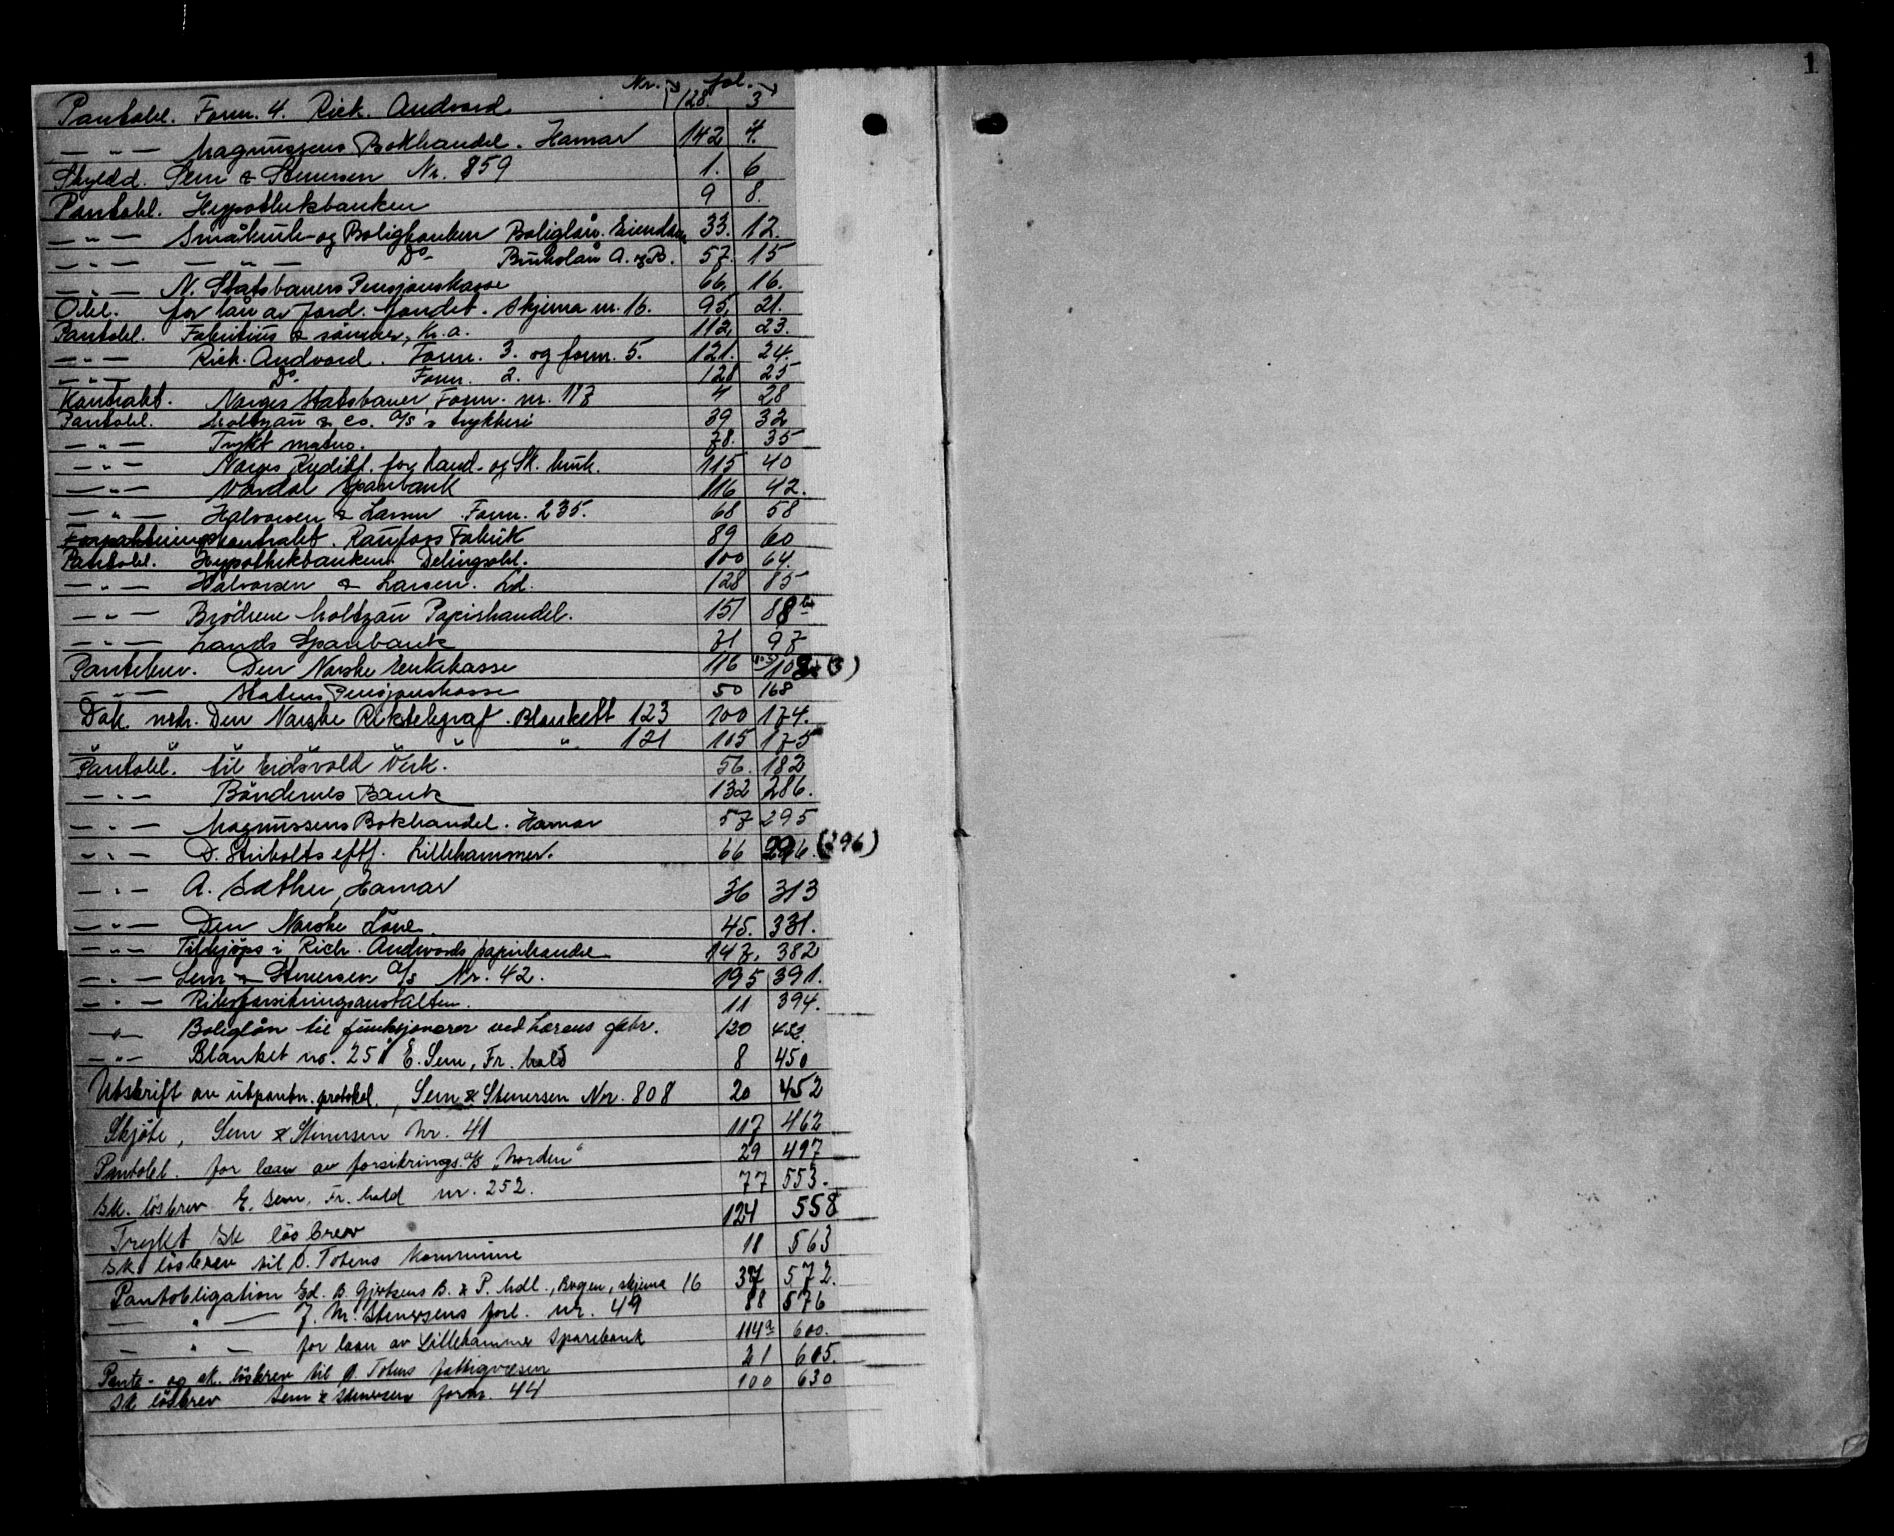 Nr. fol.
Pantobl. Form. 4. Rich. Andvord 128. 3
— " — Magnussens Bokhandel. Hamar 142 4.
Skyldd. Sem & Stenersen Nr. 859 1. 6
Pantobl. Hypothekbanken 9 8.
— " — Småbruk- og Boligbanken Boliglån. Eiendom 33. 12.
— " — — " — Do Brukslån A. og B. 57. 15
— " — N. Statsbaners Pensjonskasse 66. 16.
Obl. for lån av Jord. fondet. Skjema nr. 16. 95. 21.
Pantobl. Fabritius & sönner, Kr.a. 112. 23.
— " — Rich. Andvord. Form. 3. og form. 5. 121. 24.
— " — Do. Form. 2. 128 25
Kontrakt. Norges Statsbaner Form. nr. 117 4 28
Pantobl. Moltzau & Co. A/S's trykkeri 39 32
— " — Trykt 78. 35
— " — Norges Kreditf. for Land- og Sk. bruk. 115 40
— " — Vardal Sparebank 116 42.
— " — Halvorsen & Larsen Form. 235. 68 58
Forpaktningskontrakt. Raufoss Fabrik 89 60
Pantobl. Hypothekbanken Delingsobl. 100 64.
— " — Halvorsen & Larsen. Ld. 128 85
— " — Brödrene Moltzau Papirhandel. 151 88 b
— " — Lands Sparebank 71 97
Pantebrev. Den Norske Enkekasse 116 (103)
— " — Statens Pensjonskasse 50 168
Dok. nedr. Den Norske Rikstelegraf. Blankett 123 100 174.
" " " " " 121 105 175
Pantobl. til Eidsvold Verk. 56. 182
— " — Böndernes Bank 132 286.
— " — Magnussens Bokhandel. Hamar 57 295
— " — D. Stribolts eftf. Lillehammer. 66 296. (296)
— " — A. Sæther, Hamar 36 313
— " — Den Norske 45. 331.
— " — Tilkjöps i Rich. Andvords papirhandel 147. 382
— " — Sem & Stenersen A/S Nr. 42. 195 391.
— " — Riksforsikringsanstalten. 11 394.
— " — Boliglån til funksjonærer ved 120
— " — Blanket no. 251 E. Sem, Fr.hald 8 450
Utskrift av utpantn. protokol., Sem & Stenersen Nr. 808 20 452
Skjöte, Sem & Stenersen Nr. 41 117 462
Pantobl. for laan av forsikrings A/S "Norden" 29 497
Sk. lösbrev E. Sem, Fr.hald nr. 252. 77 553.
Trykt sk lösbrev 124 558
Sk. lösbrev til Ö. Totens kommune 18 563
Pantobligation Ed. B. Gjertsens B. & P. hdl., skjema 16 37 572.
— " — J. M. Stenersens forl. nr. 49 88 576
— " — for laan av Lillehammer Sparebank 114a 600.
Pante- og sk. lösbrev til Ö. Totens fattigvæsen 21 605.
Sk lösbrev Sem & Stenersen form. 44 100 630
1